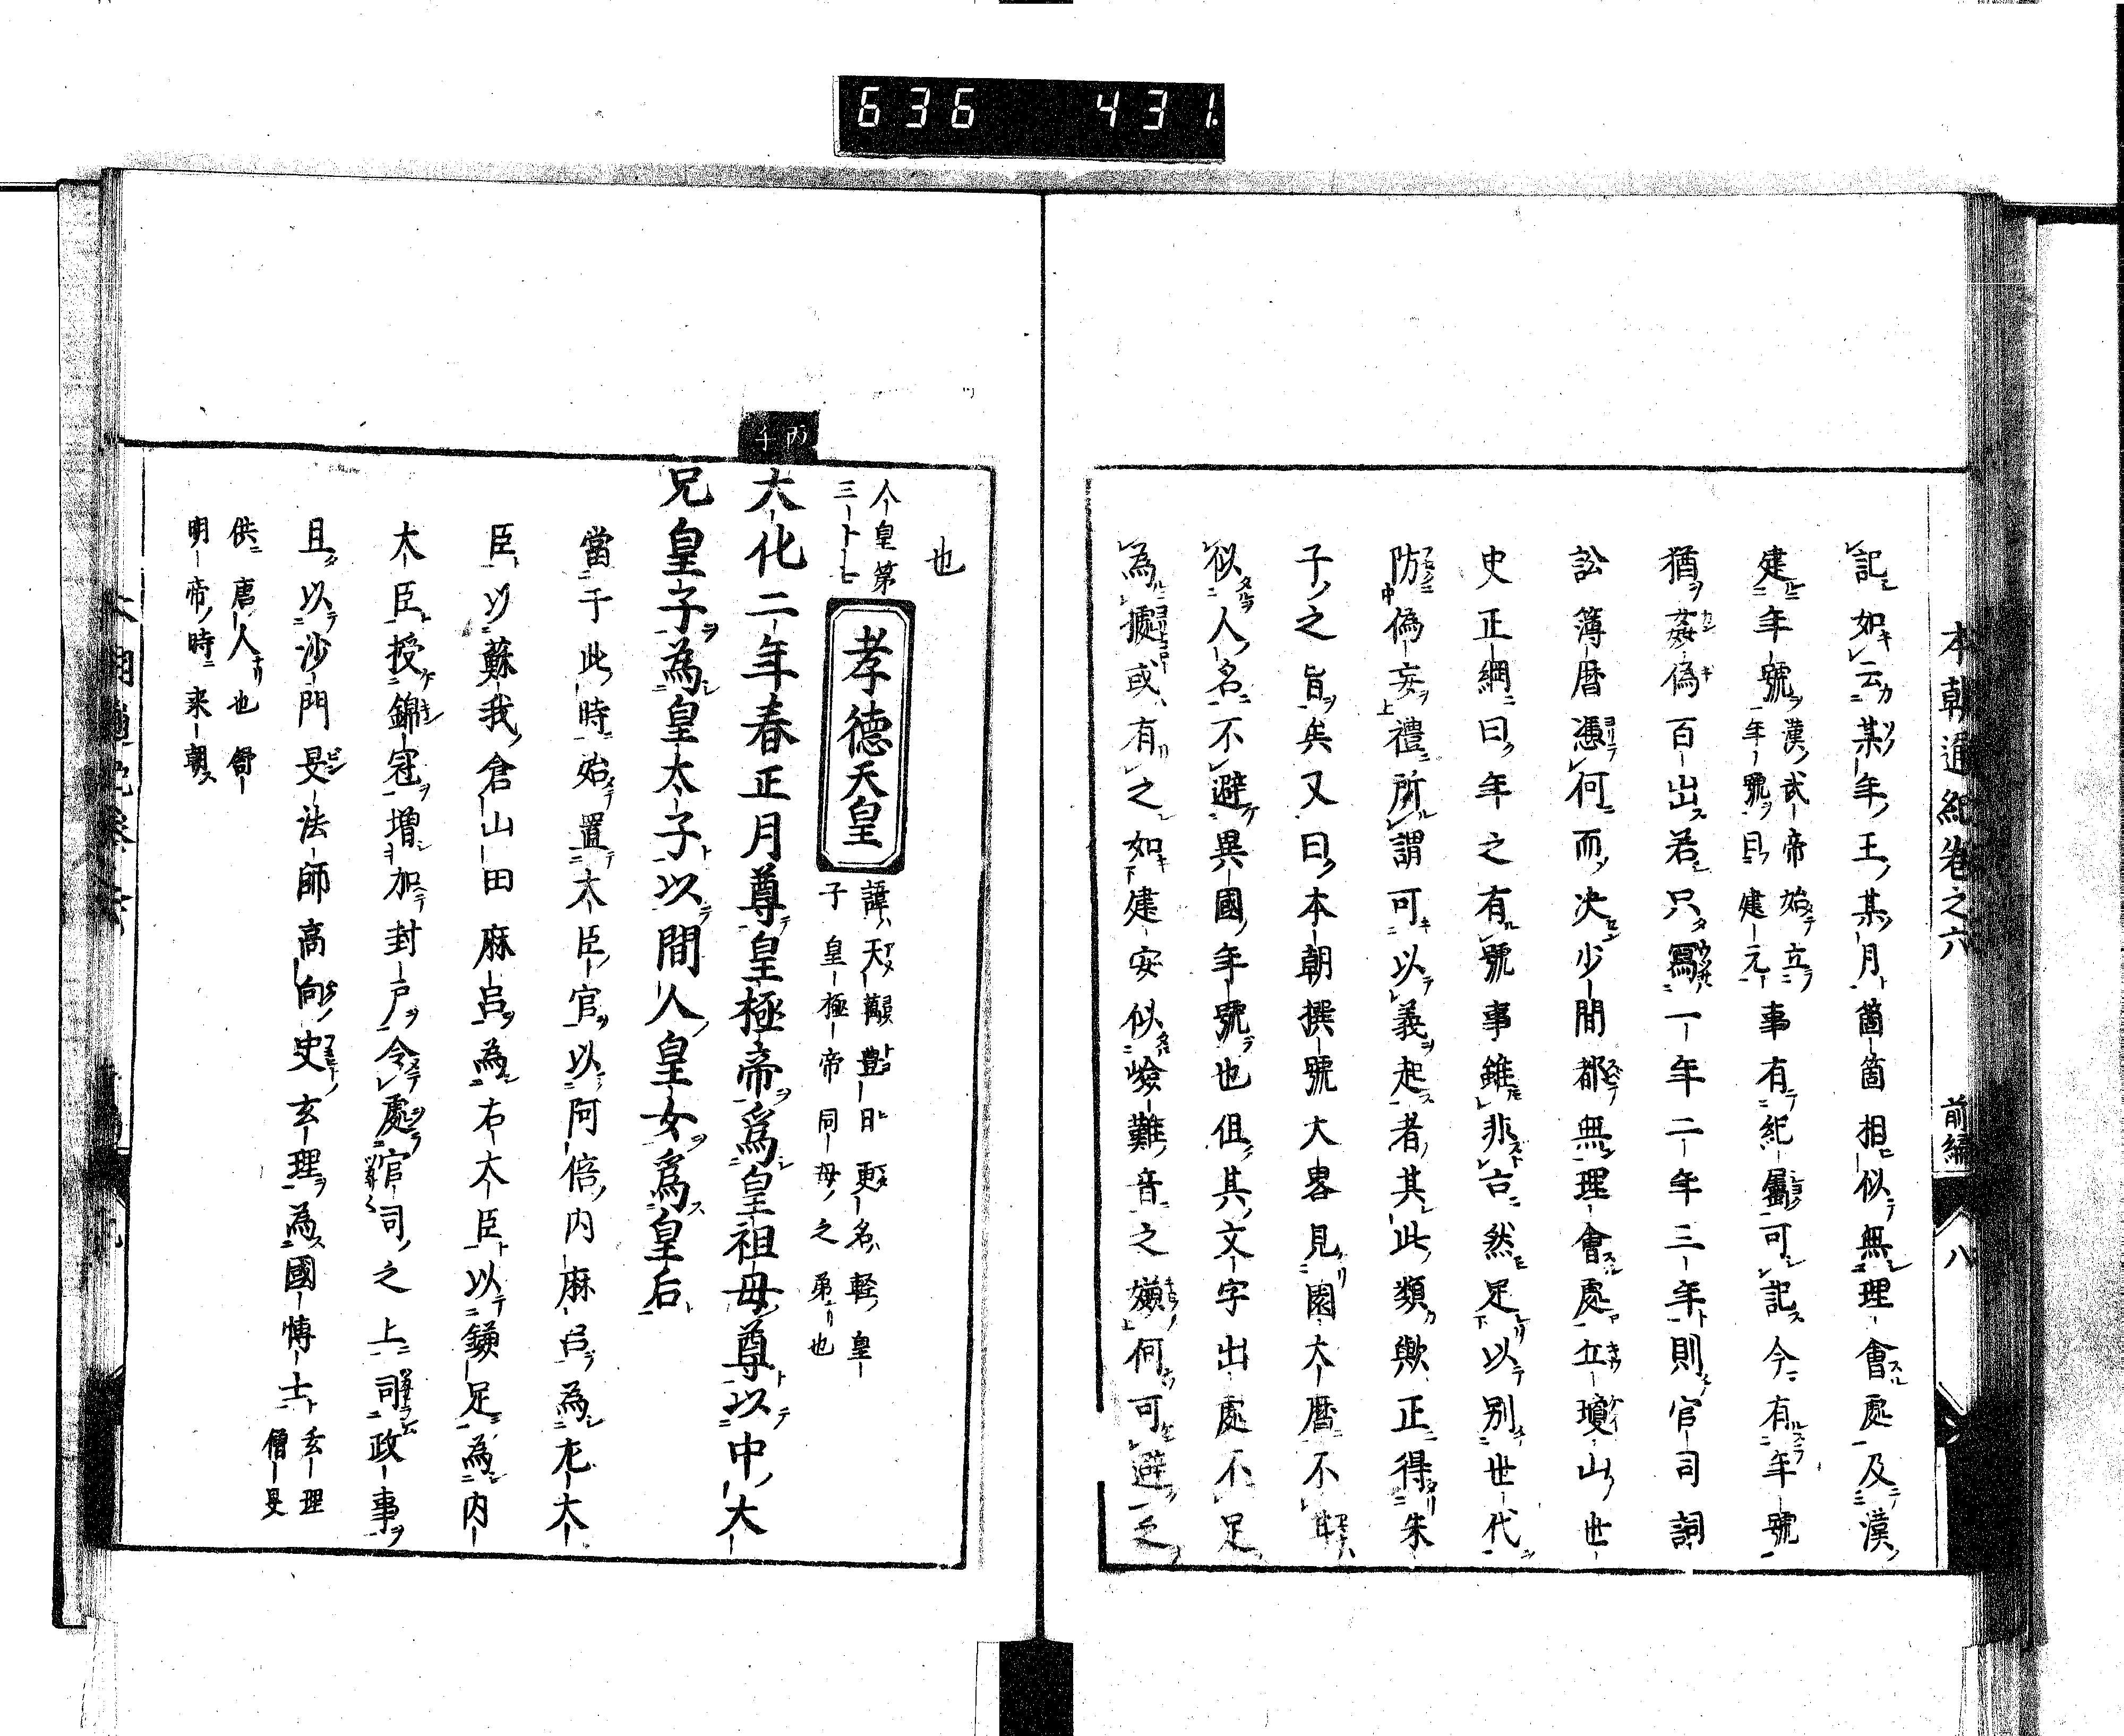 636 431
本朝通紀卷之六 前編 八
記如云某年王某月箇箇相似無理會處及漢
建年號漢武帝始立年號曰建元事有紀屬可記今有年號
猶姦偽百出若只寫一年二年三年則官司詞
訟簿暦憑何而决少間都無理會處立瓊山世
史正綱曰年之有號事雖非古然足以別世代
防偽妄禮所謂可以義起者其此類歟正得朱
子之旨矣又曰本朝撰號大畧見園太暦不
似人名不避異國年號也但其文字出處不足
為據或有之如建安似嶮難音之嫌何可避之
也
人皇第三十七
孝德天皇
諱天萬豊日更名軽皇子皇極帝同母之弟也
丙午
大化二年春正月尊皇極帝爲皇祖母尊以中大
兄皇子為皇太子以間人皇女爲皇后
當于此時始置大臣官以阿倍内麻呂為左大
臣以蘇我倉山田麻呂為右大臣以鎌足為内
大臣授錦冠増加封戸令處官司之上司政事
且以沙門旻法師高向史玄理為國博士玄理僧旻
供唐人也舒
明帝時来朝